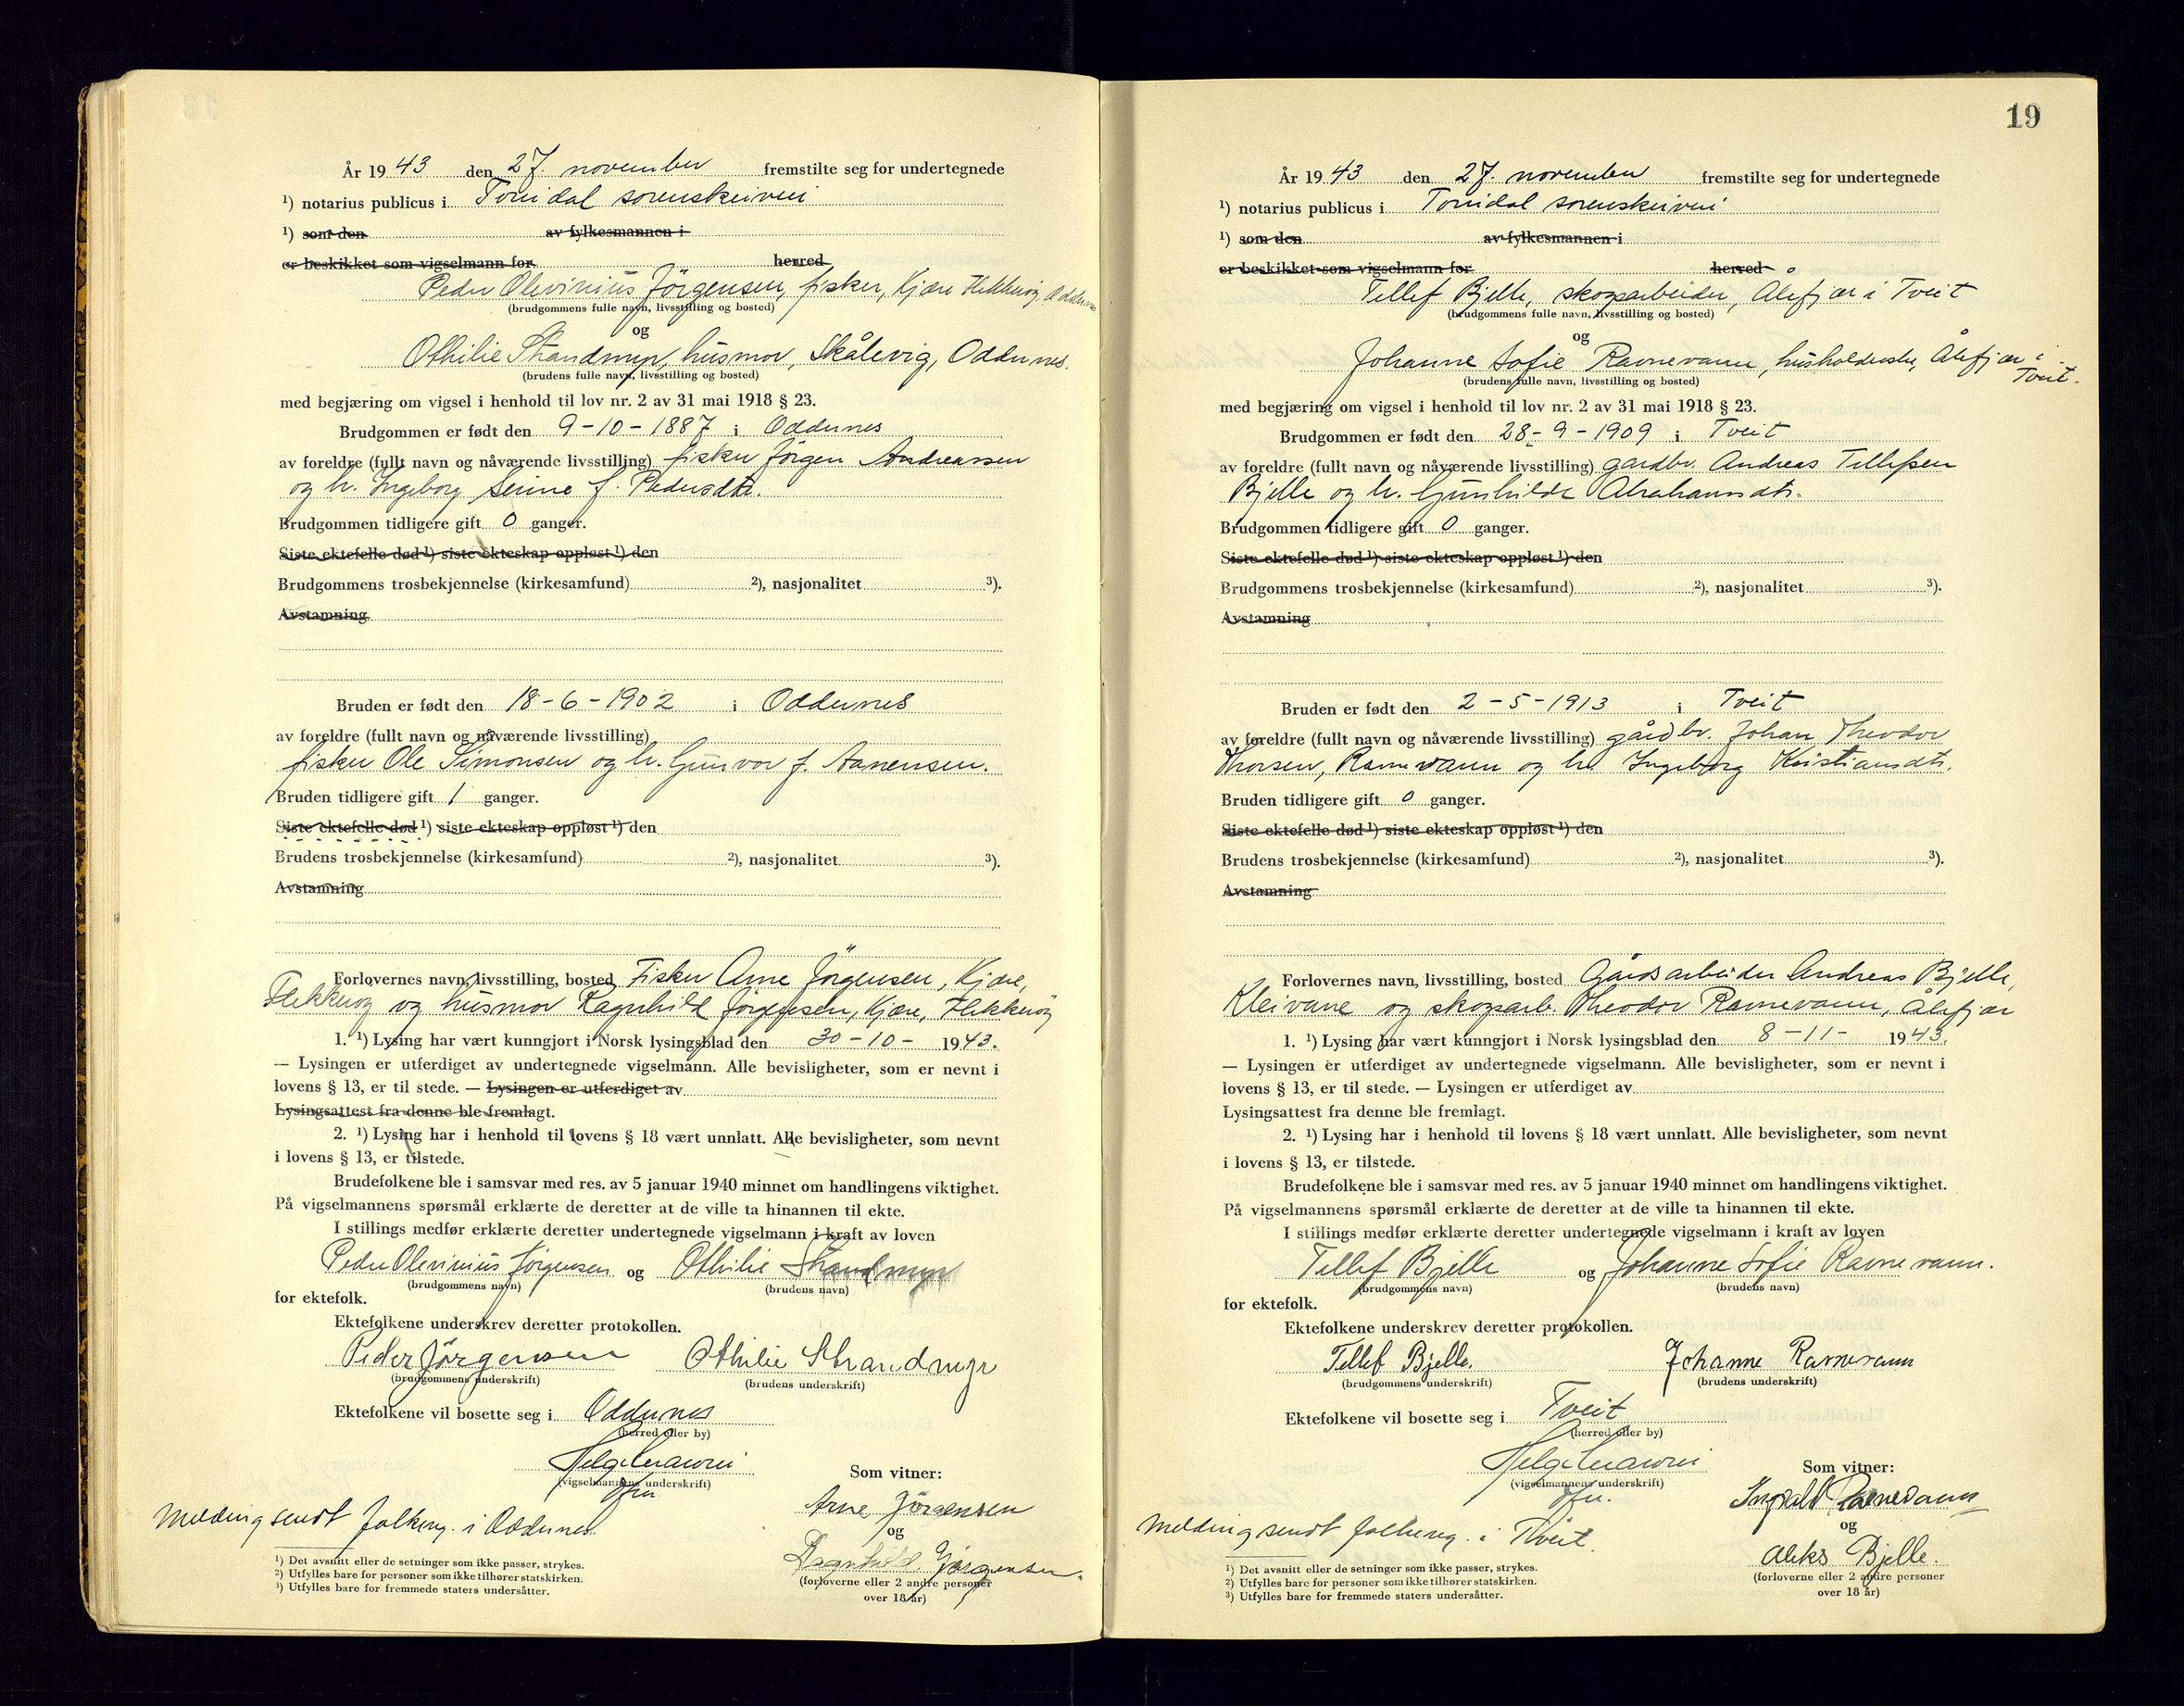 År 1943 den 27. november fremstilte seg for undertegnede
¹) notarius publicus i Torridal sorenskriveri
¹) som den av fylkesmannen i
er beskikket som vigselmann for herred
Peder Olevinius Jörgensen, fisker, Kjære Flekkerøy, Oddernes
(brudgommens fulle navn, livsstilling og bosted)
og
Othilie Strandmyr, husmor, Skålevig, Oddernes.
(brudens fulle navn, livsstilling og bosted)
med begjæring om vigsel i henhold til lov nr. 2 av 31 mai 1918 § 23.
Brudgommen er født den 9-10-1887 i Oddernes
av foreldre (fullt navn og nåværende livsstilling) fisker Jörgen Andreassen
og h. Ingeborg Serine f. Pedersdtr.
Brudgommen tidligere gift 0 ganger.
Siste ektefelle død ¹) siste ekteskap oppløst ¹) den
Brudgommens trosbekjennelse (kirkesamfund) ²), nasjonalitet ³).
Avstamning
Bruden er født den 18-6-1902 i Oddernes
av foreldre (fullt navn og nåværende livsstilling)
fisker Ole Simonsen og h. Gunvor f. Aanensen.
Bruden tidligere gift 1 ganger.
Siste ektefelle død ¹) siste ekteskap oppløst ¹) den
Brudens trosbekjennelse (kirkesamfund) ²), nasjonalitet ³).
Avstamning
Forlovernes navn, livsstilling, bosted Fisker Arne Jörgensen, Kjære,
Flekkerøy og husmor Ragnhild Jörgensen, Kjære, Flekkerøy
1. ¹) Lysing har vært kunngjort i Norsk lysingsblad den 30-10- 1943.
— Lysingen er utferdiget av undertegnede vigselmann. Alle bevisligheter, som er nevnt i
lovens § 13, er til stede. — Lysingen er utferdiget av
Lysingsattest fra denne ble fremlagt.
2. ¹) Lysing har i henhold til lovens § 18 vært unnlatt. Alle bevisligheter, som nevnt
i lovens § 13, er tilstede.
Brudefolkene ble i samsvar med res. av 5 januar 1940 minnet om handlingens viktighet.
På vigselmannens spørsmål erklærte de deretter at de ville ta hinannen til ekte.
I stillings medfør erklærte deretter undertegnede vigselmann i kraft av loven
Peder Olevinius Jörgensen og Othilie Strandmyr
(brudgommens navn) (brudens navn)
for ektefolk.
Ektefolkene underskrev deretter protokollen.
Peder Jörgensen Othilie Strandmyr
(brudgommens underskrift) (brudens underskrift)
Ektefolkene vil bosette seg i Oddernes
(herred eller by)
(vigselmannens underskrift)
Som vitner:
Arne Jörgensen
og
Ragnhild Jörgensen.
(forloverne eller 2 andre personer
over 18 år)
Melding sendt folkereg. i Oddernes.
¹) Det avsnitt eller de setninger som ikke passer, strykes.
²) Utfylles bare for personer som ikke tilhører statskirken.
³) Utfylles bare for fremmede staters undersåtter.
19
År 1943 den 27. november fremstilte seg for undertegnede
¹) notarius publicus i Torridal sorenskriveri
¹) som den av fylkesmannen i
er beskikket som vigselmann for herred
Tellef Bjelle, skogsarbeider, Ålefjær i Tveit
(brudgommens fulle navn, livsstilling og bosted)
og
Johanne Sofie Ravnevann, husholderske, Ålefjær i Tveit.
(brudens fulle navn, livsstilling og bosted)
med begjæring om vigsel i henhold til lov nr. 2 av 31 mai 1918 § 23.
Brudgommen er født den 28-9-1909 i Tveit
av foreldre (fullt navn og nåværende livsstilling) gardbr. Andreas Tellefsen
Bjelle og h. Gunhilde Abrahamsdtr.
Brudgommen tidligere gift 0 ganger.
Siste ektefelle død ¹) siste ekteskap oppløst ¹) den
Brudgommens trosbekjennelse (kirkesamfund) ²), nasjonalitet ³).
Avstamning
Bruden er født den 2-5-1913 i Tveit
av foreldre (fullt navn og nåværende livsstilling) gårdbr. Johan Theodor
Thorsen, Ravnevann og h. Ingeborg Kristiansdtr.
Bruden tidligere gift 0 ganger.
Siste ektefelle død ¹) siste ekteskap oppløst ¹) den
Brudens trosbekjennelse (kirkesamfund) ²), nasjonalitet ³).
Avstamning
Forlovernes navn, livsstilling, bosted Gårdsarbeider Andreas Bjelle,
Kleivane og skogsarb. Theodor Ravnevann, Ålefjær
1. ¹) Lysing har vært kunngjort i Norsk lysingsblad den 8-11- 1943.
— Lysingen er utferdiget av undertegnede vigselmann. Alle bevisligheter, som er nevnt i
lovens § 13, er til stede. — Lysingen er utferdiget av
Lysingsattest fra denne ble fremlagt.
2. ¹) Lysing har i henhold til lovens § 18 vært unnlatt. Alle bevisligheter, som nevnt
i lovens § 13, er tilstede.
Brudefolkene ble i samsvar med res. av 5 januar 1940 minnet om handlingens viktighet.
På vigselmannens spørsmål erklærte de deretter at de ville ta hinannen til ekte.
I stillings medfør erklærte deretter undertegnede vigselmann i kraft av loven
Tellef Bjelle og Johanne Sofie Ravnevann.
(brudgommens navn) (brudens navn)
for ektefolk.
Ektefolkene underskrev deretter protokollen.
Tellef Bjelle. Johanne Ravnevann
(brudgommens underskrift) (brudens underskrift)
Ektefolkene vil bosette seg i Tveit
(herred eller by)
(vigselmannens underskrift)
Som vitner:
Ingvald Ravnevann
og
Aleks Bjelle.
(forloverne eller 2 andre personer
over 18 år)
Melding sendt folkereg. i Tveit.
¹) Det avsnitt eller de setninger som ikke passer, strykes.
²) Utfylles bare for personer som ikke tilhører statskirken.
³) Utfylles bare for fremmede staters undersåtter.